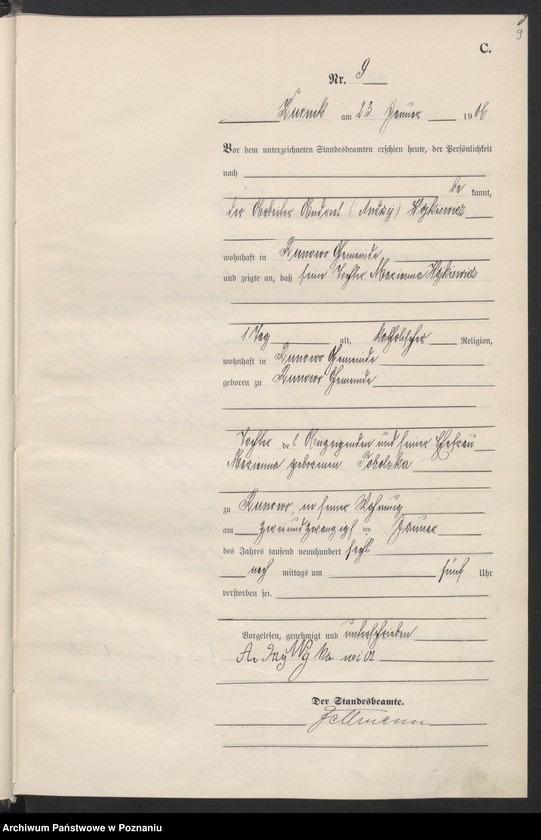 9
C.
Nr. 9
Kurnik am 23 Januar 1906
Vor dem unterzeichneten Standesbeamten erschien heute, der Persönlichkeit
nach
be kannt,
der Arbeiter Andreas (Andrzy)
wohnhaft in Runowo Gemeinde
und zeigte an, daß seine Tochter Marianna
1 Tag alt, katholischer Religion,
wohnhaft in Runowo Gemeinde
geboren zu Runowo Gemeinde
Tochter des Anzeigenden und seiner Ehefrau
Marianna geborenen Tobolska
zu Runowo, in seiner Wohnung
am zweiundzwanzigsten Januar
des Jahres tausend neunhundert sechs
nach mittags um fünf Uhr
verstorben sei.
Vorgelesen, genehmigt und unterschrieben
Der Standesbeamte.
Archiwum Państwowe w Poznaniu